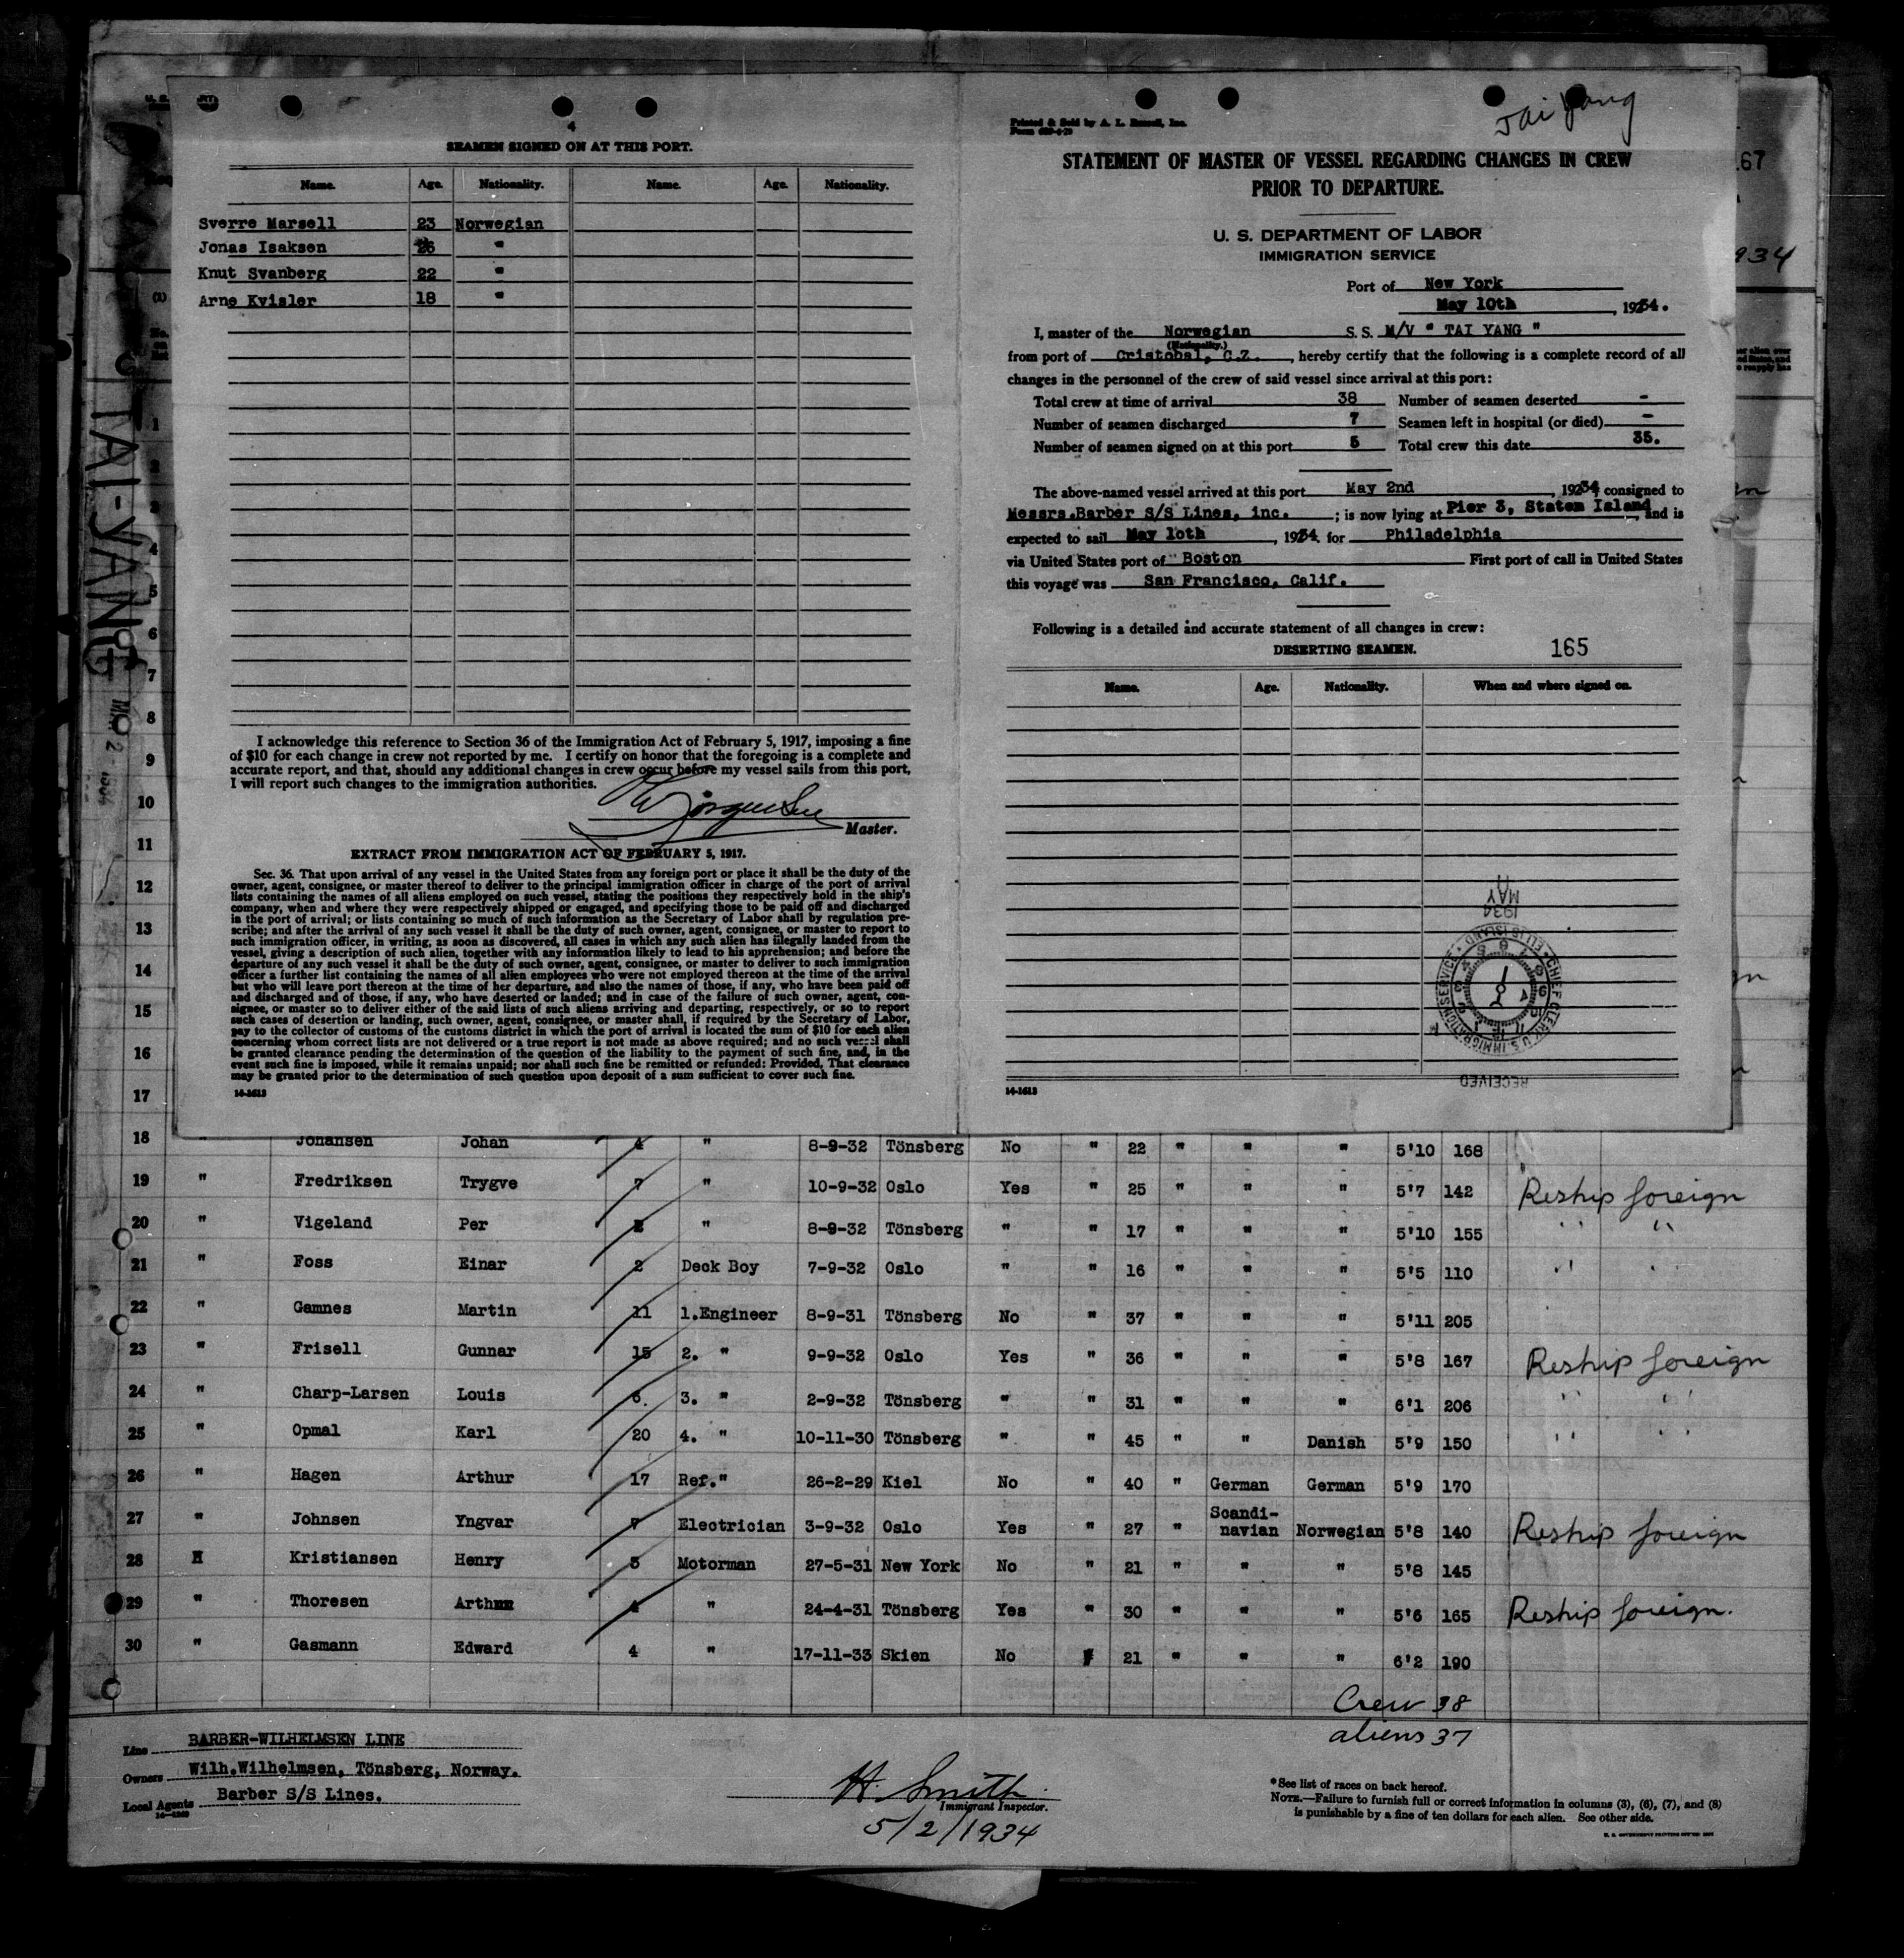 4
SEAMEN SIGNED ON AT THIS PORT.
Name. Age. Nationality. Name. Age. Nationality.
Sverre Marsell 23 Norwegian
Jonas Isaksen 26 "
Knut Svanberg 22 "
Arne Kvisler 18 "
I acknowledge this reference to Section 36 of the Immigration Act of February 5, 1917, imposing a fine
of $10 for each change in crew not reported by me. I certify on honor that the foregoing is a complete and
accurate report, and that, should any additional changes in crew occur before my vessel sails from this port,
I will report such changes to the immigration authorities.
Master.
EXTRACT FROM IMMIGRATION ACT OF FEBRUARY 5, 1917.
Sec. 36. That upon arrival of any vessel in the United States from any foreign port or place it shall be the duty of the
owner, agent, consignee, or master thereof to deliver to the principal immigration officer in charge of the port of arrival
lists containing the names of all aliens employed on such vessel, stating the positions they respectively hold in the ship's
company, when and where they were respectively shipped or engaged, and specifying those to be paid off and discharged
in the port of arrival; or lists containing so much of such information as the Secretary of Labor shall by regulation pre-
scribe; and after the arrival of any such vessel it shall be the duty of such owner, agent, consignee, or master to report to
such immigration officer, in writing, as soon as discovered, all cases in which any such alien has illegally landed from the
vessel, giving a description of such alien, together with any information likely to lead to his apprehension; and before the
departure of any such vessel it shall be the duty of such owner, agent, consignee, or master to deliver to such immigration
officer a further list containing the names of all alien employees who were not employed thereon at the time of the arrival
but who will leave port thereon at the time of her departure, and also the names of those, if any, who have been paid off
and discharged and of those, if any, who have deserted or landed; and in case of the failure of such owner, agent, con-
signee, or master so to deliver either of the said lists of such aliens arriving and departing, respectively, or so to report
such cases of desertion or landing, such owner, agent, consignee, or master shall, if required by the Secretary of Labor,
pay to the collector of customs of the customs district in which the port of arrival is located the sum of $10 for each alien
concerning whom correct lists are not delivered or a true report is not made as above required; and no such vessel shall
be granted clearance pending the determination of the question of the liability to the payment of such fine, and, in the
event such fine is imposed, while it remains unpaid; nor shall such fine be remitted or refunded: Provided, That clearance
may be granted prior to the determination of such question upon deposit of a sum sufficient to cover such fine.
14-1613
Tai Yang
Printed & Sold by A. L. Russell, Inc.
STATEMENT OF MASTER OF VESSEL REGARDING CHANGES IN CREW
PRIOR TO DEPARTURE.
U. S. DEPARTMENT OF LABOR
IMMIGRATION SERVICE
Port of New York
May 10th, 1934.
I, master of the Norwegian S.S. M/V " TAI YANG "
(Nationality.)
from port of Cristobal, C.Z., hereby certify that the following is a complete record of all
changes in the personnel of the crew of said vessel since arrival at this port:
Total crew at time of arrival 38 Number of seamen deserted -
Number of seamen discharged 7 Seamen left in hospital (or died) -
Number of seamen signed on at this port 5 Total crew this date 35.
The above-named vessel arrived at this port May 2nd, 1934, consigned to
Messrs.Barber S/S Lines, inc. ; is now lying at Pier 3, Staten Island, and is
expected to sail May 10th, 1934. for Philadelphia
via United States port of Boston First port of call in United States
this voyage was San Francisco, Calif.
Following is a detailed and accurate statement of all changes in crew:
DESERTING SEAMEN. 165
Name. Age. Nationality. When and where signed on.
MAY
1934
CHIEF CLERK U.S. IMMIGRATION SERVICE ELLIS ISLAND
RECEIVED
14-1613
67
934
TAI-YANG
MAY 2 1934
1
2
3
4
5
6
7
8
9
10
11
12
13
14
15
16
17
18 " Johansen Johan 4 " 8-9-32 Tönsberg No " 22 " " " 5'10 168
19 " Fredriksen Trygve 7 " 10-9-32 Oslo Yes " 25 " " " 5'7 142 Reship foreign
20 " Vigeland Per " 8-9-32 Tönsberg " " 17 " " " 5'10 155 " "
21 " Foss Einar 2 Deck Boy 7-9-32 Oslo " " 16 " " " 5'5 110 " "
22 " Gamnes Martin 11 1.Engineer 8-9-31 Tönsberg No " 37 " " " 5'11 205
23 " Frisell Gunnar 15 2. " 9-9-32 Oslo Yes " 36 " " " 5'8 167 Reship foreign
24 " Charp-Larsen Louis 6. 3. " 2-9-32 Tönsberg " " 31 " " " 6'1 206 " "
25 " Opmal Karl 20 4. " 10-11-30 Tönsberg " " 45 " " Danish 5'9 150 " "
26 " Hagen Arthur 17 Ref." 26-2-29 Kiel No " 40 " German German 5'9 170
27 " Johnsen Yngvar 7 Electrician 3-9-32 Oslo Yes " 27 " Scandi-navian Norwegian 5'8 140 Reship foreign
28 " Kristiansen Henry 5 Motorman 27-5-31 New York No " 21 " " " 5'8 145
29 " Thoresen Arthur 4 " 24-4-31 Tönsberg Yes " 30 " " " 5'6 165 Reship foreign.
30 " Gasmann Edward 4 " 17-11-33 Skien No " 21 " " " 6'2 190
Crew 38
aliens 37
Line BARBER-WILHELMSEN LINE
Owners Wilh.Wilhelmsen, Tönsberg, Norway.
Local Agents Barber S/S Lines.
H. Smith
Immigrant Inspector.
5/2/1934
*See list of races on back hereof.
NOTE.—Failure to furnish full or correct information in columns (3), (6), (7), and (8)
is punishable by a fine of ten dollars for each alien. See other side.